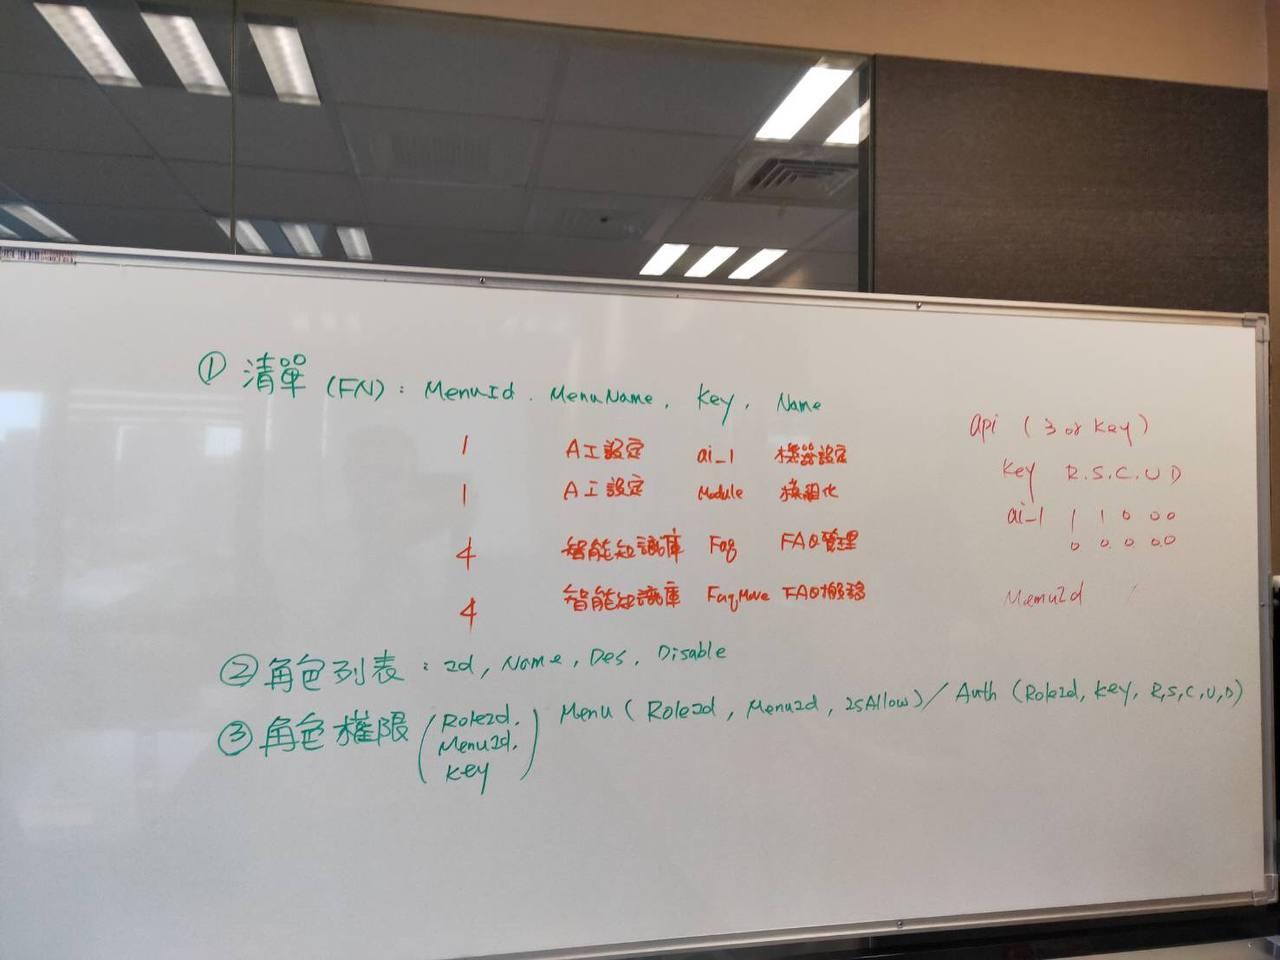 ① 清單 (FN) : MenuId . MenuName , Key , Name
1 AI設定 ai_1 機器設定
1 AI設定 Module 模組化
4 智能知識庫 Faq FAQ管理
4 智能知識庫 FaqMove FAQ搬移
② 角色列表 : Id , Name , Des , Disable
③ 角色權限 ( RoleId. Menu ( RoleId , MenuId , IsAllow ) / Auth ( RoleId, Key , R,S,C,U,D )
MenuId.
Key )
api ( 3 or Key )
Key R.S.C.U D
ai_1 1 1 0 0 0
0 0 0 0 0
MenuId